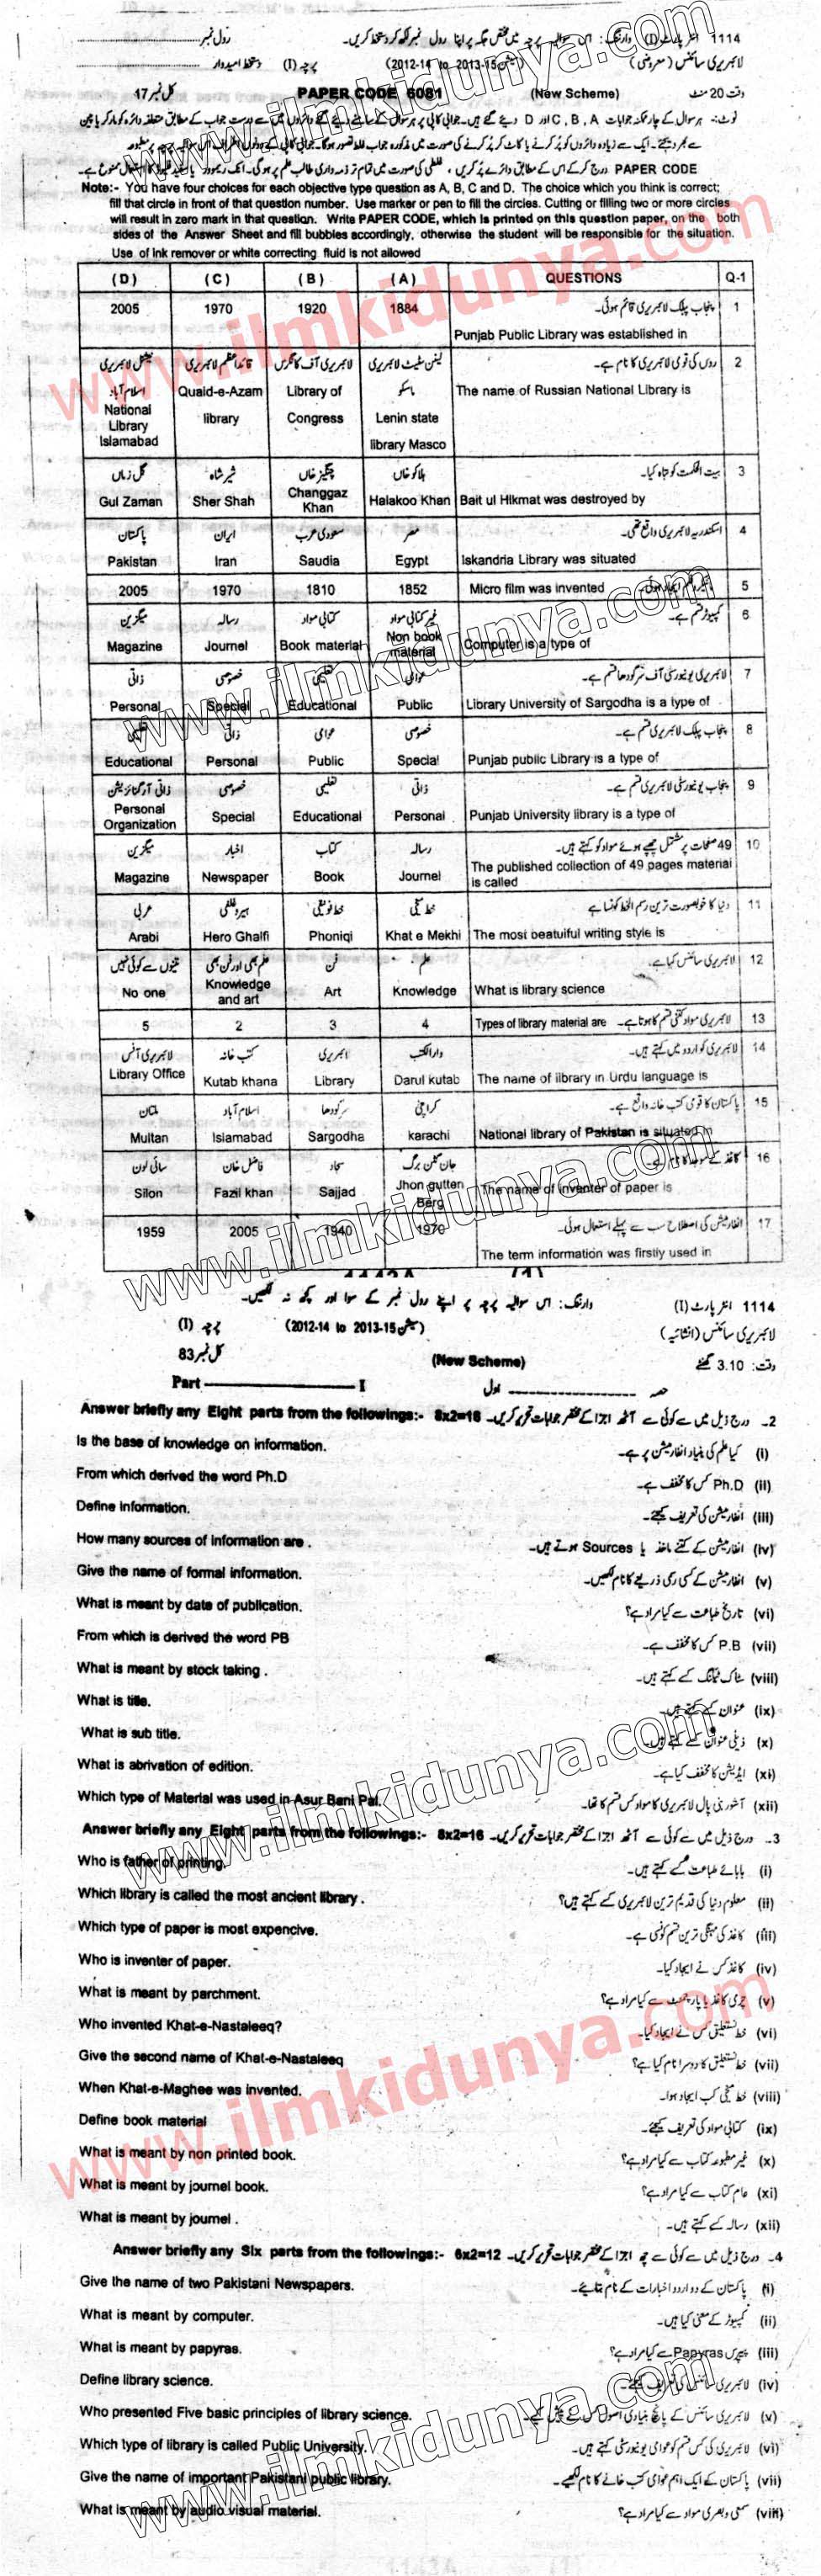 1114 انٹر پارٹ (I) وارننگ: اس سوالیہ پرچہ میں مختص جگہ پر اپنا رول نمبر لکھ کر دستخط کریں۔ رول نمبر
لائبریری سائنس (معروضی) (سیشن 15-2013 to 14-2012) پرچہ (I) دستخط امیدوار
وقت 20 منٹ (New Scheme) PAPER CODE 6081 کل نمبر 17
Note:- You have four choices for each objective type question as A, B, C and D. The choice which you think is correct;
fill that circle in front of that question number. Use marker or pen to fill the circles. Cutting or filling two or more circles
will result in zero mark in that question. Write PAPER CODE, which is printed on this question paper, on the both
sides of the Answer Sheet and fill bubbles accordingly, otherwise the student will be responsible for the situation.
Use of ink remover or white correcting fluid is not allowed
(D) (C) (B) (A) QUESTIONS Q-1
پنجاب پبلک لائبریری قائم ہوئی۔ 1
2005 1970 1920 1884
Punjab Public Library was established in
نیشنل لائبریری اسلام آباد قائداعظم لائبریری لائبریری آف کانگرس لینن سٹیٹ لائبریری ماسکو روس کی قومی لائبریری کا نام ہے۔ 2
National Library Islamabad Quaid-e-Azam library Library of Congress Lenin state library Masco The name of Russian National Library is
گل زماں شیر شاہ چنگیز خاں ہلاکو خاں بیت الحکمت کو تباہ کیا۔ 3
Gul Zaman Sher Shah Changgaz Khan Halakoo Khan Bait ul Hikmat was destroyed by
پاکستان ایران سعودی عرب مصر اسکندریہ لائبریری واقع تھی۔ 4
Pakistan Iran Saudia Egypt Iskandria Library was situated
2005 1970 1810 1852 Micro film was invented 5
میگزین رسالہ کتابی مواد غیر کتابی مواد کمپیوٹر قسم ہے۔ 6
Magazine Journel Book material Non book material Computer is a type of
ذاتی خصوصی تعلیمی عوامی لائبریری یونیورسٹی آف سرگودھا قسم ہے۔ 7
Personal Special Educational Public Library University of Sargodha is a type of
تعلیمی ذاتی عوامی خصوصی پنجاب پبلک لائبریری قسم ہے۔ 8
Educational Personal Public Special Punjab public Library is a type of
ذاتی آرگنائزیشن خصوصی تعلیمی ذاتی پنجاب یونیورسٹی لائبریری قسم ہے۔ 9
Personal Organization Special Educational Personal Punjab University library is a type of
میگزین اخبار کتاب رسالہ 49 صفحات پر مشتمل چھپے ہوئے مواد کو کہتے ہیں۔ 10
Magazine Newspaper Book Journel The published collection of 49 pages material is called
عربی ہیرو غلفی خط فونیقی خط میخی دنیا کا خوبصورت ترین رسم الخط کونسا ہے 11
Arabi Hero Ghalfi Phoniqi Khat e Mekhi The most beatuiful writing style is
تینوں سے کوئی نہیں علم بھی اور فن بھی فن علم لائبریری سائنس کیا ہے۔ 12
No one Knowledge and art Art Knowledge What is library science
5 2 3 4 Types of library material are لائبریری مواد کتنی قسم کا ہوتا ہے۔ 13
لائبریری آفس کتب خانہ لائبریری دارالکتب لائبریری کو اردو میں کہتے ہیں۔ 14
Library Office Kutab khana Library Darul kutab The name of library in Urdu language is
ملتان اسلام آباد سرگودھا کراچی پاکستان کا قومی کتب خانہ واقع ہے۔ 15
Multan Islamabad Sargodha karachi National library of Pakistan is situated in
سائی لون فاضل خان سجاد جان گٹن برگ کاغذ کے موجد کا نام ہے۔ 16
Silon Fazil khan Sajjad Jhon gutten Berg The name of inventer of paper is
انفارمیشن کی اصطلاح سب سے پہلے استعمال ہوئی۔ 17
1959 2005 1940 1970
The term information was firstly used in
1114 انٹر پارٹ (I) وارننگ: اس سوالیہ پرچہ پر اپنے رول نمبر کے سوا اور کچھ نہ لکھیں۔
لائبریری سائنس (انشائیہ) (سیشن 15-2013 to 14-2012) پرچہ (I)
وقت: 3.10 گھنٹے (New Scheme) کل نمبر 83
Part I حصہ اول
Answer briefly any Eight parts from the followings:- 8x2=16 2۔ درج ذیل میں سے کوئی سے آٹھ اجزا کے مختصر جوابات تحریر کریں۔
Is the base of knowledge on information. (i) کیا علم کی بنیاد انفارمیشن پر ہے۔
From which derived the word Ph.D (ii) Ph.D کس کا مخفف ہے۔
Define information. (iii) انفارمیشن کی تعریف کیجئے۔
How many sources of information are . (iv) انفارمیشن کے کتنے ماخذ یا Sources ہوتے ہیں۔
Give the name of formal information. (v) انفارمیشن کے کسی رسمی ذریعے کا نام لکھیں۔
What is meant by date of publication. (vi) تاریخ طباعت سے کیا مراد ہے؟
From which is derived the word PB (vii) P.B کس کا مخفف ہے۔
What is meant by stock taking . (viii) سٹاک ٹیکنگ کسے کہتے ہیں۔
What is title. (ix) عنوان کسے کہتے ہیں۔
What is sub title. (x) ذیلی عنوان کسے کہتے ہیں۔
What is abrivation of edition. (xi) ایڈیشن کا مخفف کیا ہے۔
Which type of Material was used in Asur Bani Pal. (xii) آشور بنی پال لائبریری کا مواد کس قسم کا تھا۔
Answer briefly any Eight parts from the followings:- 8x2=16 3۔ درج ذیل میں سے کوئی سے آٹھ اجزا کے مختصر جوابات تحریر کریں۔
Who is father of printing. (i) بابائے طباعت کسے کہتے ہیں۔
Which library is called the most ancient library . (ii) معلوم دنیا کی قدیم ترین لائبریری کسے کہتے ہیں؟
Which type of paper is most expencive. (iii) کاغذ کی مہنگی ترین قسم کونسی ہے۔
Who is inventer of paper. (iv) کاغذ کس نے ایجاد کیا۔
What is meant by parchment. (v) چرمی کاغذ یا پارچمنٹ سے کیا مراد ہے؟
Who invented Khat-e-Nastaleeq? (vi) خط نستعلیق کس نے ایجاد کیا۔
Give the second name of Khat-e-Nastaleeq (vii) خط نستعلیق کا دوسرا نام کیا ہے؟
When Khat-e-Maghee was invented. (viii) خط میخی کب ایجاد ہوا۔
Define book material (ix) کتابی مواد کی تعریف کیجئے۔
What is meant by non printed book. (x) غیر مطبوعہ کتاب سے کیا مراد ہے؟
What is meant by journel book. (xi) عام کتاب سے کیا مراد ہے؟
What is meant by journel . (xii) رسالہ کسے کہتے ہیں۔
Answer briefly any Six parts from the followings:- 6x2=12 4۔ درج ذیل میں سے کوئی سے چھ اجزا کے مختصر جوابات تحریر کریں۔
Give the name of two Pakistani Newspapers. (i) پاکستان کے دو اردو اخبارات کے نام بتائیے۔
What is meant by computer. (ii) کمپیوٹر کے معنی کیا ہیں۔
What is meant by papyras. (iii) پیپرس Papyras سے کیا مراد ہے؟
Define library science. (iv) لائبریری سائنس کی تعریف کیجئے۔
Who presented Five basic principles of library science. (v) لائبریری سائنس کے پانچ بنیادی اصول کس نے پیش کیے۔
Which type of library is called Public University. (vi) لائبریری کی کس قسم کو عوامی یونیورسٹی کہتے ہیں۔
Give the name of important Pakistani public library. (vii) پاکستان کے ایک اہم عوامی کتب خانے کا نام لکھیے۔
What is meant by audio visual material. (viii) سمعی و بصری مواد سے کیا مراد ہے؟
www.ilmkidunya.com